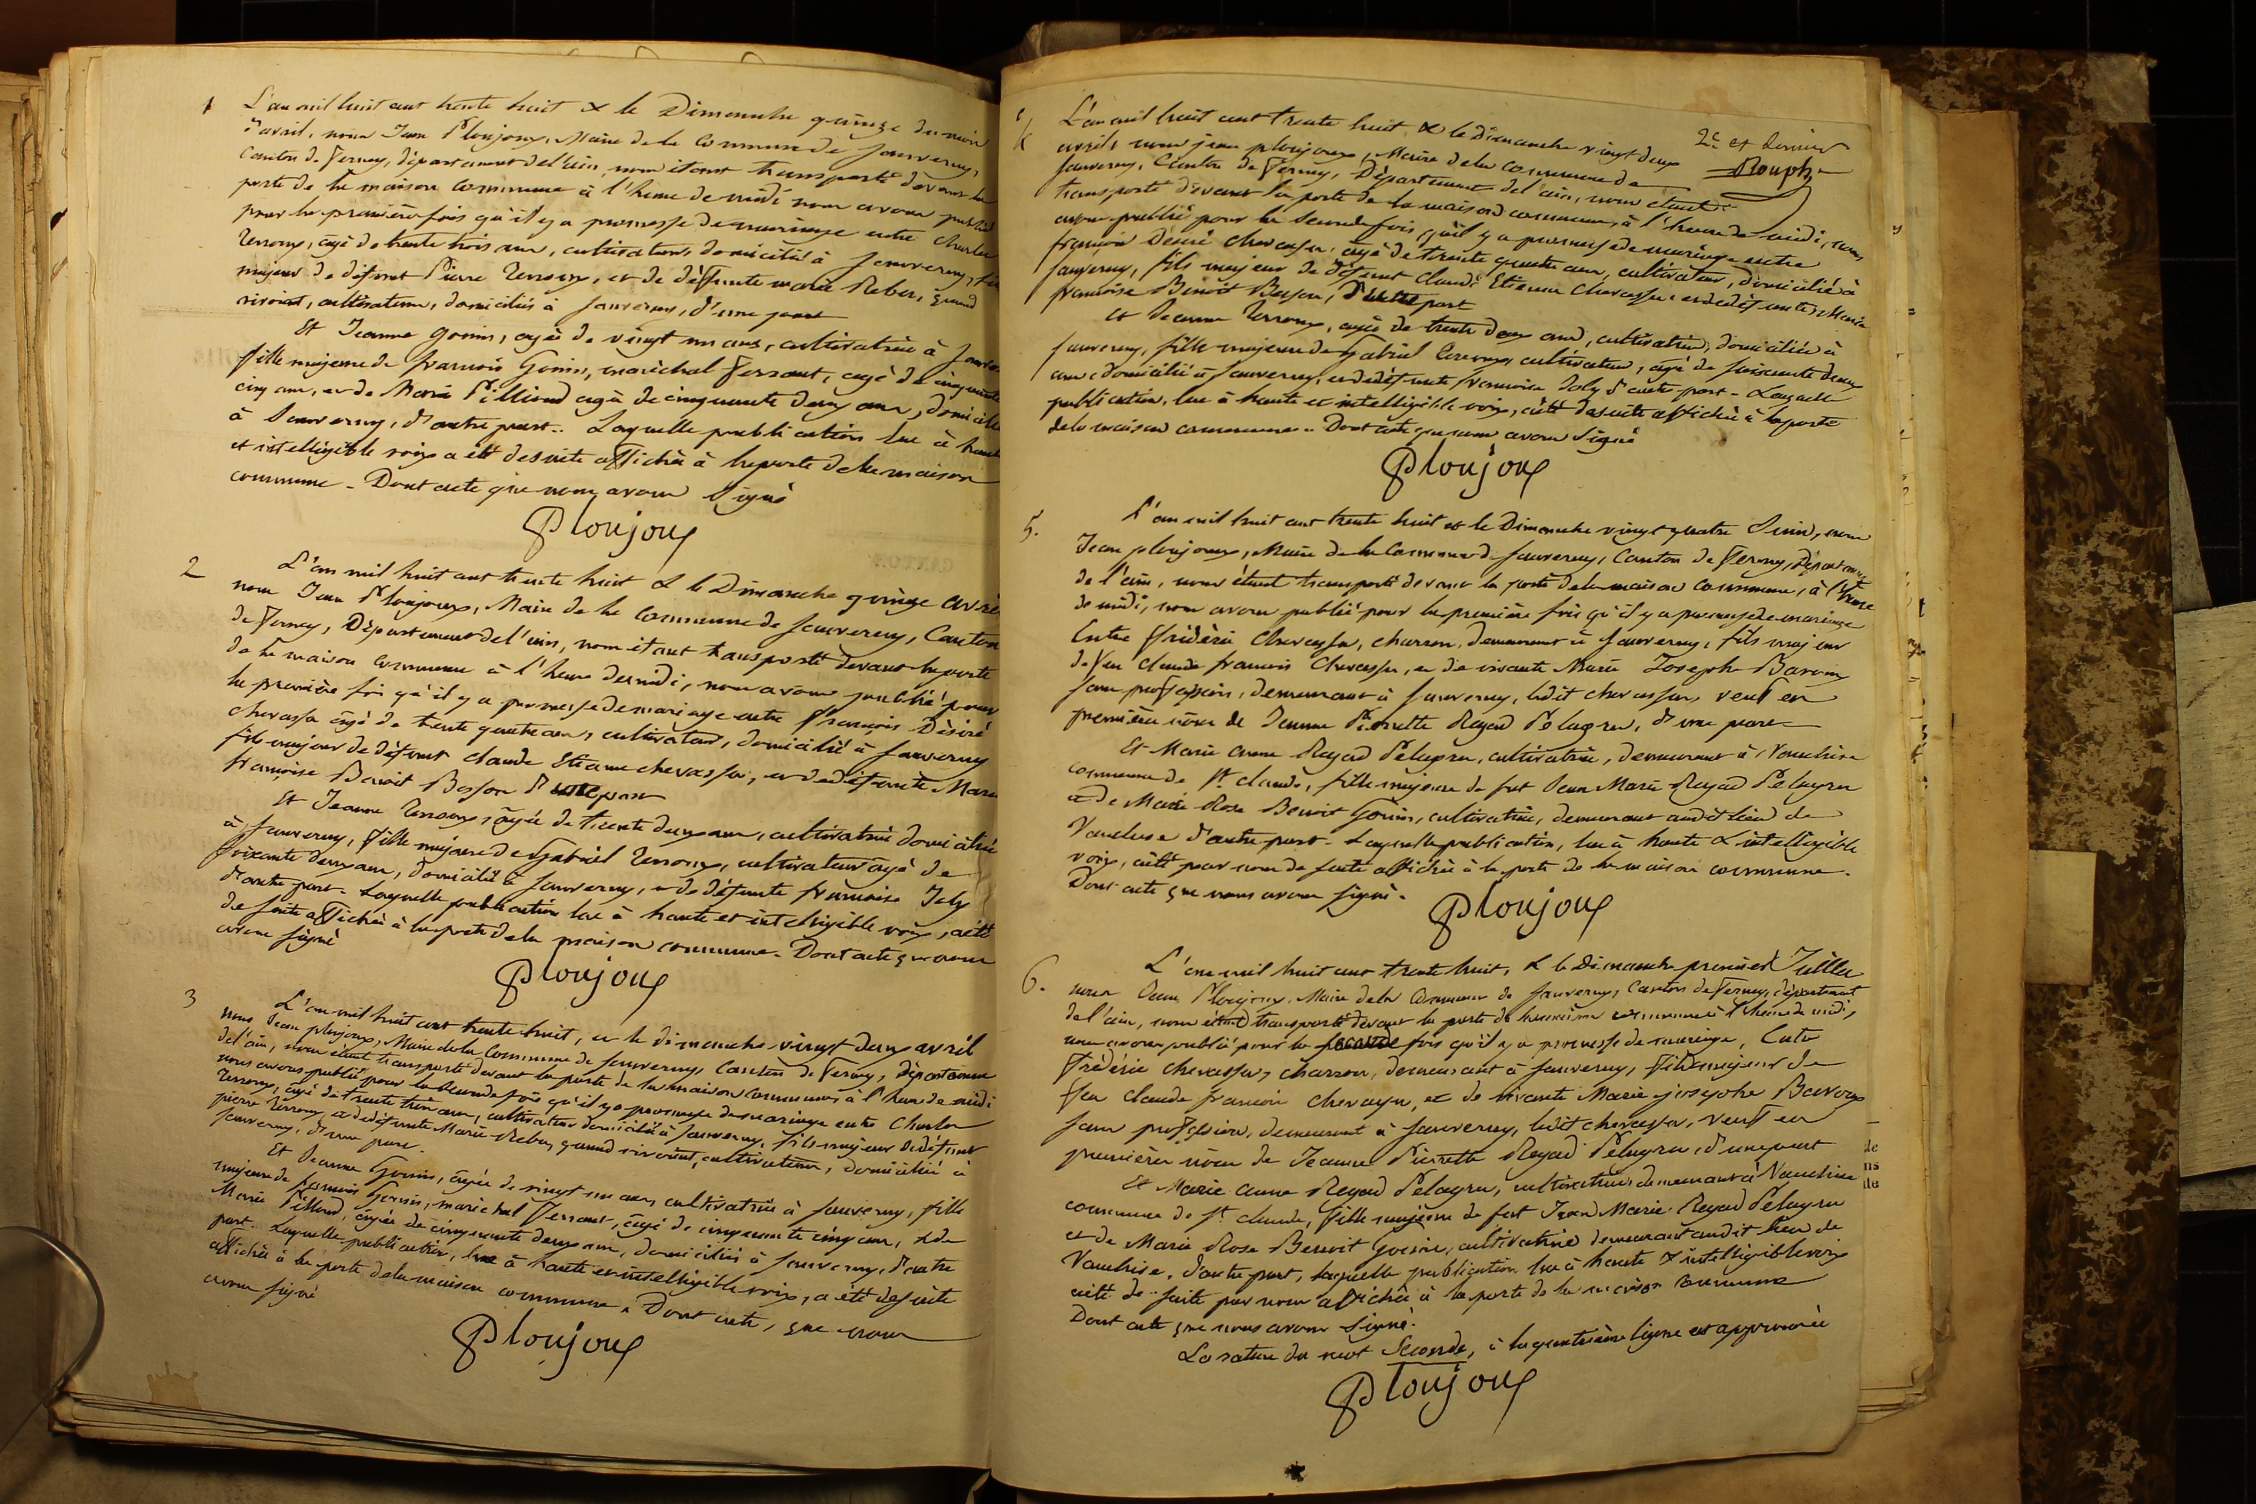 1
L'an mil huit cent trente huit & le Dimanche quinze du mois
d'avril, nous Jean Ploujoux, Maire de la Commune de Sauverny,
Canton de Ferney, département de l'ain, nous étant transporté devant la
porte de la maison commune à l'heure de midi nous avons publié
pour la première fois qu'il y a promesse de mariage entre Charles
Terroux, âgé de trente trois ans, cultivateur, domicilié à Sauverny, fils
majeur de défunt Pierre Terroux, et de défunte marie Reber, quand
vivoient, cultivateurs, domiciliés à Sauverny, d'une part
Et Jeanne Gonin, agée de vingt un ans, cultivatrice à Sauverny
fille majeure de françois Gonin, maréchal ferrant, agé de cinquante
cinq ans, et de Marie Pilliond agée de cinquante deux ans, domiciliés
à Sauverny, d'autre part.. Laquelle publication lue à haute
et intelligible voix a été desuite affichée à la porte de la maison
commune - Dont acte que nous avons signé
Ploujoux
2
L'an mil huit cent trente huit & le Dimanche quinze avril
nous Jean Ploujoux, Maire de la Commune de Sauverny, Canton
de Ferney, Département de l'ain, nous étant transporté devant la porte
de la maison Commune à l'heure de midi, nous avons publié pour
la première fois qu'il y a promesse de mariage entre François Désiré
Chevassu âgé de trente quatre ans, cultivateur, domicilié à Sauverny
fils majeur de défunt claude Etienne chevassu, et de défunte Marie
françoise Benoit Besson d'une part
Et Jeanne Terroux, âgée de trente deux ans, cultivatrice domiciliée
à Sauverny, fille majeure de Gabriel Terroux, cultivateur âgé de
soixante deux ans, domicilié à Sauverny, et de défunte françoise Joly
d'autre part - Laquelle publication lue à haute et intelligible voix, a été
de suite affichée à la porte de la maison commune - Dont acte que nous
avons signé
Ploujoux
3
L'an mil huit cent trente huit, et le dimanche vingt deux avril
nous Jean ploujoux, Maire de la Commune de Sauverny, Canton de Ferney, Département
de l'ain, nous étant transporté devant la porte de la maison commune à l'heure de midi
nous avons publié pour la seconde fois qu'il y a promesse de mariage entre Charles
Terroux, agé de trente trois ans, cultivateur domicilié à Sauverny, fils majeur de défunt
pierre Terroux, et de défunte Marie Reber, quand vivoient, cultivateurs, domiciliés à
Sauverny, d'une part.
Et Jeanne Gonin, âgée de vingt un ans, cultivatrice à Sauverny, fille
majeure de françois Gonin, maréchal ferrant, âgé de cinquante cinq ans, & de
Marie Pilliond, âgée de cinquante deux ans, domiciliés à Sauverny, d'autre
part - Laquelle publication, lue à haute et intelligible voix, a été desuite
affichée à la porte de la maison commune. Dont acte, que nous
avons signé
Ploujoux
2e. et dernier
4
L'an mil huit cent trente huit & le Dimanche vingt deux
avril, nous jean ploujoux, Maire de la commune de
Sauverny, Canton de Ferney, Département de l'ain, nous étant
transporté devant la porte de la maison commune, à l'heure de midi, nous
avons publié pour la seconde fois qu'il y a promesse de mariage entre
françois Désiré chevassu, âgé de trente quatre ans, cultivateur, domicilié à
Sauverny, fils majeur de défunt Claude Etienne Chevassu, et de défunte Marie
françoise Benoit Besson, d'une part
Et Jeanne Terroux, agée de trente deux ans, cultivatrice, domiciliée à
Sauverny, fille majeure de Gabriel Terroux, cultivateur, âgé de soixante deux
ans, domicilié à Sauverny, et de défunte françoise Joly d'autre part - Laquelle
publication, lue à haute et intelligible voix, a été desuite affichée à la porte
de la maison commune - Dont acte que nous avons signé
Ploujoux
5.
L'an mil huit cent trente huit et le Dimanche vingt quatre Juin, nous
Jean ploujoux, Maire de la Commune de Sauverny, Canton de Ferney, Département
de l'ain, nous étant transporté devant la porte de la maison commune, à l'heure
de midi, nous avons publié pour la première fois qu'il y a promesse de mariage
Entre frédéric Chevassu, charron, demeurant à Sauverny, fils majeur
de feu claude françois Chevassu, et de vivante Marie Josephe Bavoux
sans profession, demeurant à Sauverny, ledit chevassu, veuf en
premières nôces de Jeanne Pierrette Regad Pelagru, d'une part
Et Marie anne Regad Pelagru, cultivatrice, demeurant à Vaucluse
commune de St. claude, fille majeure de fut Jean Marie Regad Pelagru
et de Marie Rose Benoit Gonin, cultivatrice, demeurant audit lieu de
Vaucluse d'autre part - Laquelle publication, lue à haute & intelligible
voix, a été par nous de suite affichée à la porte de la maison commune.
Dont acte que nous avons signé.
Ploujoux
6.
L'an mil huit cent trente huit, & le Dimanche premier Juillet
nous Jean Ploujoux, Maire de la Commune de Sauverny, Canton de Ferney, département
de l'ain, nous étant transporté devant la porte de la maison commune à l'heure de midi,
nous avons publié pour la seconde fois qu'il y a promesse de mariage, Entre
frédéric chevassu, charron, demeurant à Sauverny, fils majeur de
feu claude françois chevassu, et de vivante Marie josephe Bavoux
sans profession, demeurant à Sauverny, ledit chevassu, veuf en
premières nôces de Jeanne Pierrette Regad Pelagru, d'une part
Et Marie anne Regad Pelagru, cultivatrice demeurant à Vaucluse
commune de St. claude, fille majeure de fut Jean Marie Regad Pelagru
et de Marie Rose Benoit Gonin, cultivatrice demeurant audit lieu de
Vaucluse, d'autre part, laquelle publication lue à haute & intelligible voix
a été de suite par nous affichée à la porte de la maison commune
Dont acte que nous avons signé.
La rature du mot seconde, à la quatrième ligne est approuvée
Ploujoux